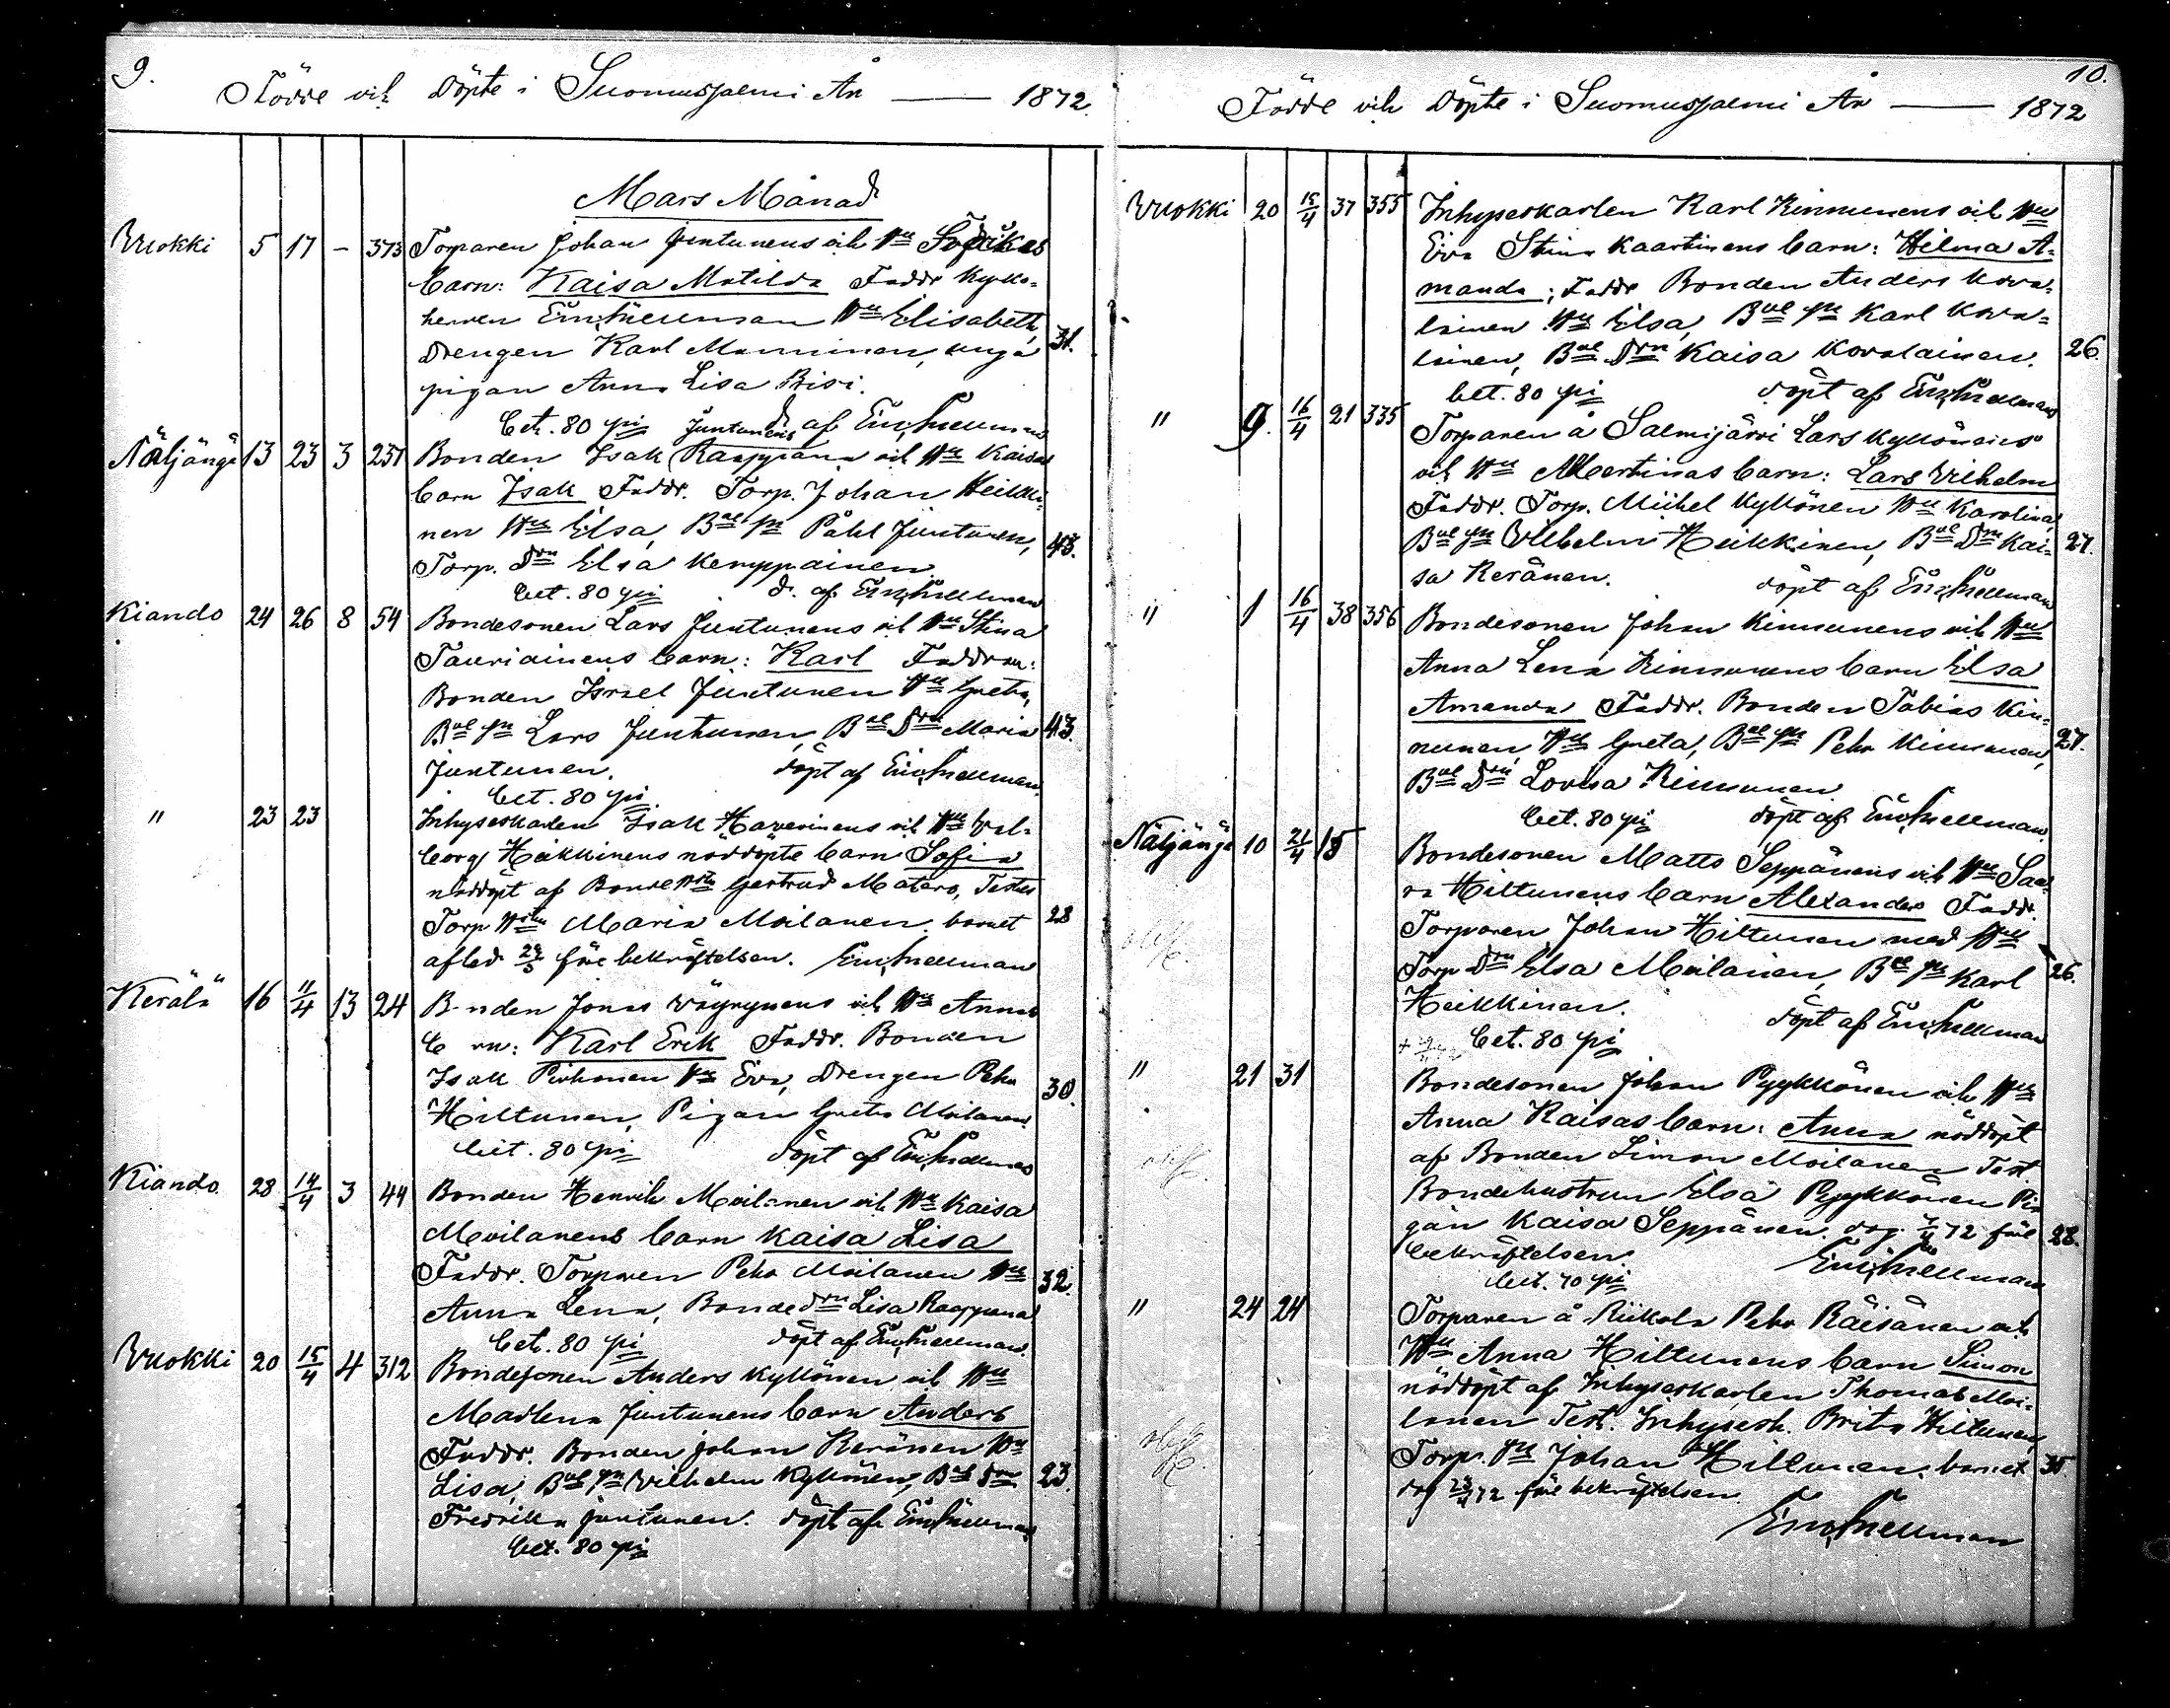 9.
Födde och Döpte i Suomussalmi År — 1872.
Mars Månad
Vuokki 5 17 - 373 Torparen Johan Juntunens och Hu Sofikas
barn: Kaisa Matilda Faddr Kyrko-
herren Em. Snellman Hu Elisabeth,
Drengen Karl Manninen, unga 31.
pigan Anna Lisa Bisi.
bet. 80 pi d. af Em. Snellman
Juntunens
Näljänge 13 23 3 257 Bonden Isak Raappana och Hu Kaisa
barn Isak Faddr. Torp. Johan Heikki-
nen Hu Elsa, Bde sn Påhl Juntunen, 43.
Torp. Drn Elsa Kemppainen
bet. 80 pi d. af Em. Snellman
Kiando 24 26 8 54 Bondesonen Lars Juntunens och Hu Stina
Tauriainens barn: Karl Faddrar:
Bonden Israel Juntunen Hu Greta,
Bde sn Lars Juntunen, Bde Drn Maria 43.
Juntunen. döpt af Em. Snellman.
bet. 80 pi.
" 23 23 Inhyseskarlen Isak Haverinens och Hu Val-
borg Heikkinens nöddöpte barn Sofia
nöddöpt af Bonde Hstn Gertrud Matero, Testes
Torp Hstn Maria Moilanen. barnet 28
afled före bekräftelsen. Em. Snellman
Kerälä 16 11/4 13 24 Bonden Jonas Väyrynens och Hu Annas
barn: Karl Erik Faddr. Bonden
Isak Pirhonen Hu Eva, Drengen Pehr 30.
Hiltunen, Pigan Greta Moilanen
bet. 80 pi döpt af Em. Snellman
Kiando 28 14/4 3 44 Bonden Henrik Moilanen och Hu Kaisa
Moilanens barn Kaisa Lisa
Faddr. Torparen Pehr Moilanen Hu 32.
Anna Lena, Bonde drn Lisa Raappana
bet. 80 pi döpt af Em. Snellman.
Vuokki 20 15/4 4 312 Bondesonen Anders Kyllönen och Hu
Madlena Juntunens barn Anders
Faddr. Bonden Johan Keränen Hu
Lisa, Bde sn Vilhelm Kyllönen, Bde drn 23.
Fredrika Juntunen. döpt af Em. Snellman
bet. 80 pi
10.
Födde och Döpte i Suomussalmi År — 1872
Vuokki 20 15/4 37 355 Inhyseskarlen Karl Kinnunens och Hu
Eva Stina Kaartinens barn: Hilma A-
manda; Faddr Bonden Anders Kova-
lainen Hu Elsa, Bde sn Karl Kova-
lainen, Bde Drn Kaisa Kovalainen. 26.
bet. 80 pi döpt af Em. Snellman
" 9. 16/4 21 335 Torparen å Salmijärvi Lars Kyllönens
och Hu Albertinas barn: Lars Vilhelm
Faddr. Torp. Mickel Kyllönen Hu Karolina,
Bde sn Vilhelm Heikkinen, Bde Drn Kai- 27.
sa Keränen. döpt af Em. Snellman
" 1 16/4 38 356 Bondesonen Johan Kinnunens och Hu
Anna Lena Kinnunens barn Elsa
Amanda Faddr. Bonden Tobias Kin-
nunen, Hu Greta, Bde sn Pehr Kinnunen, 27.
Bde Drn Lovisa Kinnunen
bet. 80 pi döpt af Em. Snellman
Näljänge 10 21/4 15 Bondesonen Matts Seppänens och Hu Sa-
ra Hiltunens barn Alexander Faddr.
Torparen Johan Hiltunen med Hu
Torp Drn Elsa Moilanen, Bde sn Karl 26.
Heikkinen. döpt af Em. Snellman
bet. 80 pi
" 21 31 Bondesonen Johan Pyykkönen och Hu
Anna Kaisas barn: Anna nöddöpt
af Bonden Simon Moilanen Test.
Bondehustrun Elsa Pyykkönen Pi-
gan Kaisa Seppänen. dog 72 före 28.
bekräftelsen. Em. Snellman
bet. 40 pi
" 24 24 Torparen å Riikola Pehr Räisänen och
Hu Anna Hiltunens barn Simon
nöddöpt af Inhyseskarlen Thomas Moi-
lanen Test. Inhysesk. Brita Hiltunen,
Torp. sn Johan Hiltunen. barnet 35
dog 72 före bekräftelsen.
Em. Snellman